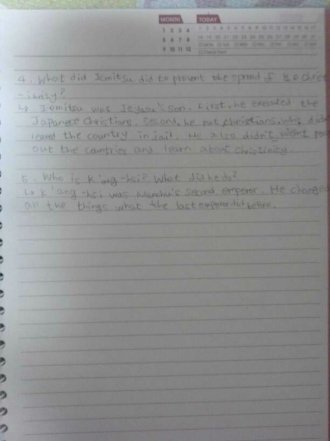 MONTH TODAY
4. What did Iemitsu did to prevent the spread of the Christ
-ianity?
↳ Iemitsu was Ieyasu's son. First, he executed the
Japanese Christians. Second, he put christians who didn't
leave the country in jail. He also didn't want people
out the countries and learn about christinity.
5. Who is K'ang-hsi? What did he do?
↳ K'ang-hsi was Manchu's second emperor. He changed
all the things what the last emperor did before.